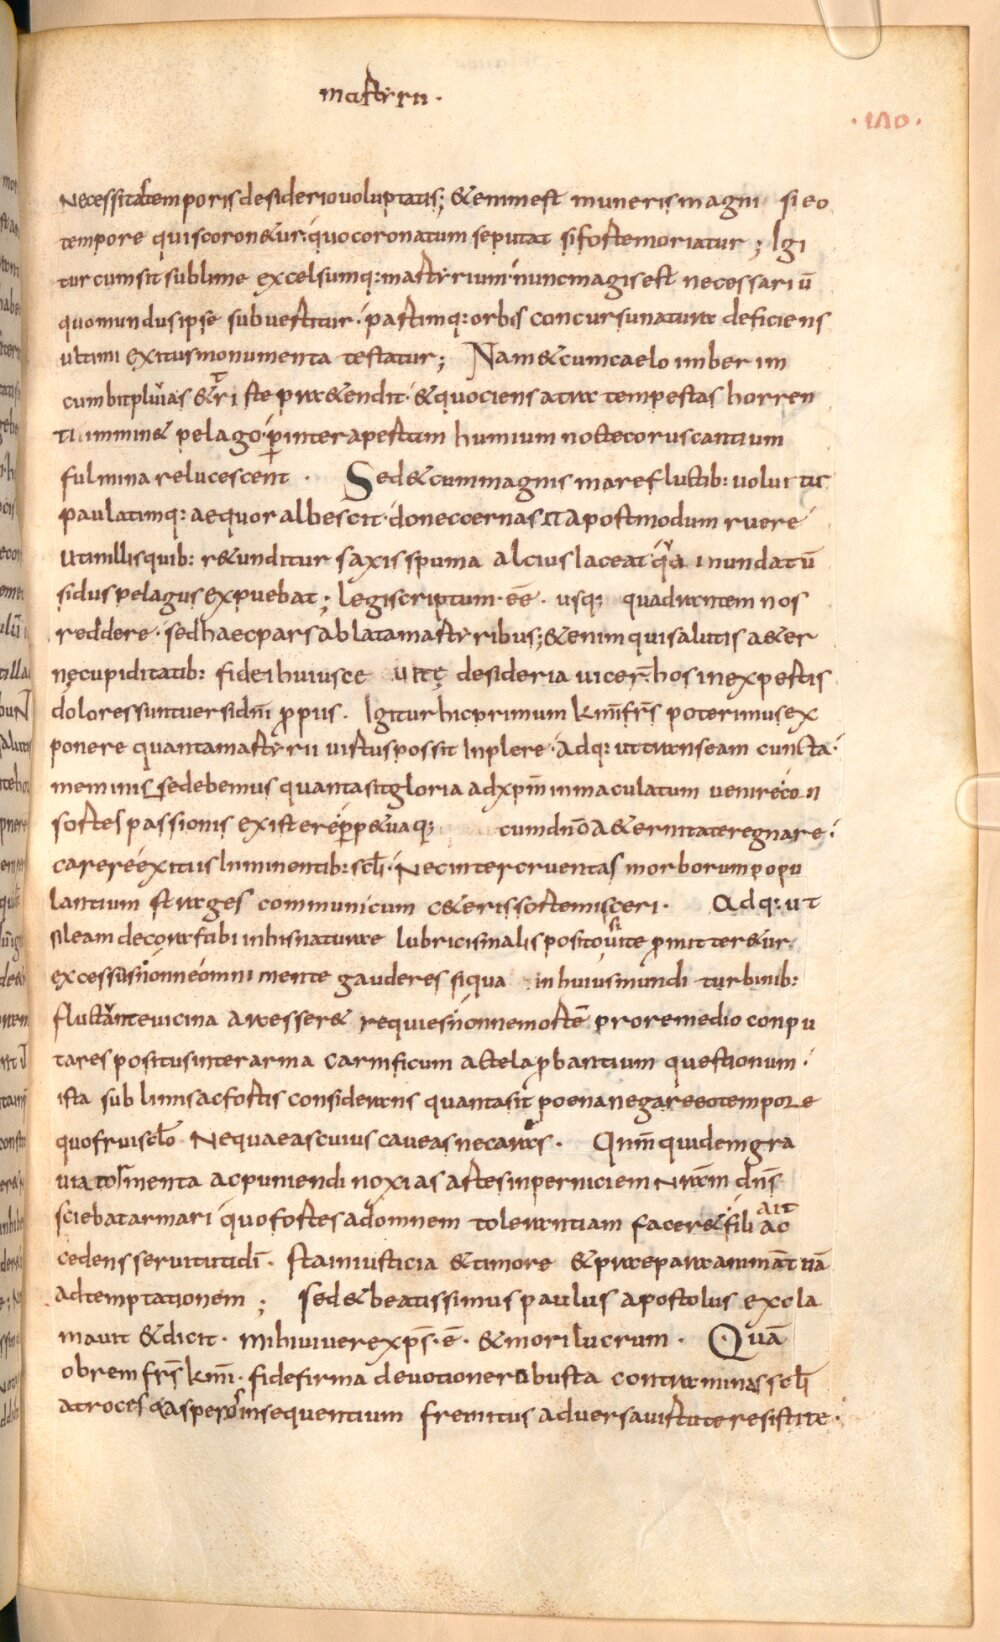 martyrii ·
· 180 ·
Necessitate temporis desiderio voluptatis; & enim est muneris magni si eo
tempore quis coron&ur· quo coronatum se putat si forte moriatur; Igi
tur cum sit sublime excelsumq: martyrium· nunc magis est necessariū
quo mundus ipse subvertitur· partimq: orbis concursu natura deficiens
ultimi exitus monumenta testatur; Nam & cum caelo imber im
cumbit pluvias & triste pra&endit· & quociens atra tempestas horren
ti immin& pelago· p inter apertum humium nocte coruscantium
fulmina relucescent · Sed & cum magnis mare fluctib: voluitur
paulatimq: aequor albescit· donec cernas ITA postmodum ruere
ut in illis quib: r&unditur saxis spuma alcius laceat quā inundatū
sidus pelagus expuebat; legi scriptum· ēē· usq; quadrantem nos
reddere· sed haec pars ablata martyribus; & enim qui salutis a&er
nę cupiditatib: fidei huiusce vitę desideria vicer̄· hos inexpertis
dolores sunt uersi dnī ppus· Igitur hic primum kmī frs̄ poterimus ex
ponere quanta martyrii virtus possit Inplere· Adq: ut transeam cuncta·
meminisse debemus quanta sit gloria ad xpm̄ inmaculatum venire· con
sortes passionis existere· pp&uaq; cum dnō A&ernitate regnare·
carere exitiis Inminentib: scl̄i· Nec inter cruentas morborum popu
lantium strages communicum c&eris sorte misceri· Adq: ut
illeam decora· si tibi in his naturae lubricis malis posito vitę pmitter&ur
excessus· nonne omni mente gauderes si qua in huius mundi turbinib:
fluctuante vicina arcesser& requies· nonne mortē pro remedio conpu
tares positus inter arma carnificum ac tela pbantium questionum·
ista sublimis ac fortis considerans quanta sit poena negare eo tempore
quo frui sclō· Nequaeas cuius caveas necarâs· Qnm̄ quidem gra
via tormenta ac puniendi noxias artes in perniciem nrām dns̄
sciebat armari· quo fortes ad omnem tolerantiam facer& ait fili ac
cedens servituti dī· sta in iusticia & timore & praepara animā tuā
ad temptationem; sed & beatissimus paulus apostolus excla
mavit & dicit· mihi vivere xps̄·ē· & mori lucrum· Quā
obrem frs̄ kmī· fide firma devotione robusta contra minas scl̄i
atroces & asperos insequentium fremitus adversa virtute resistite·